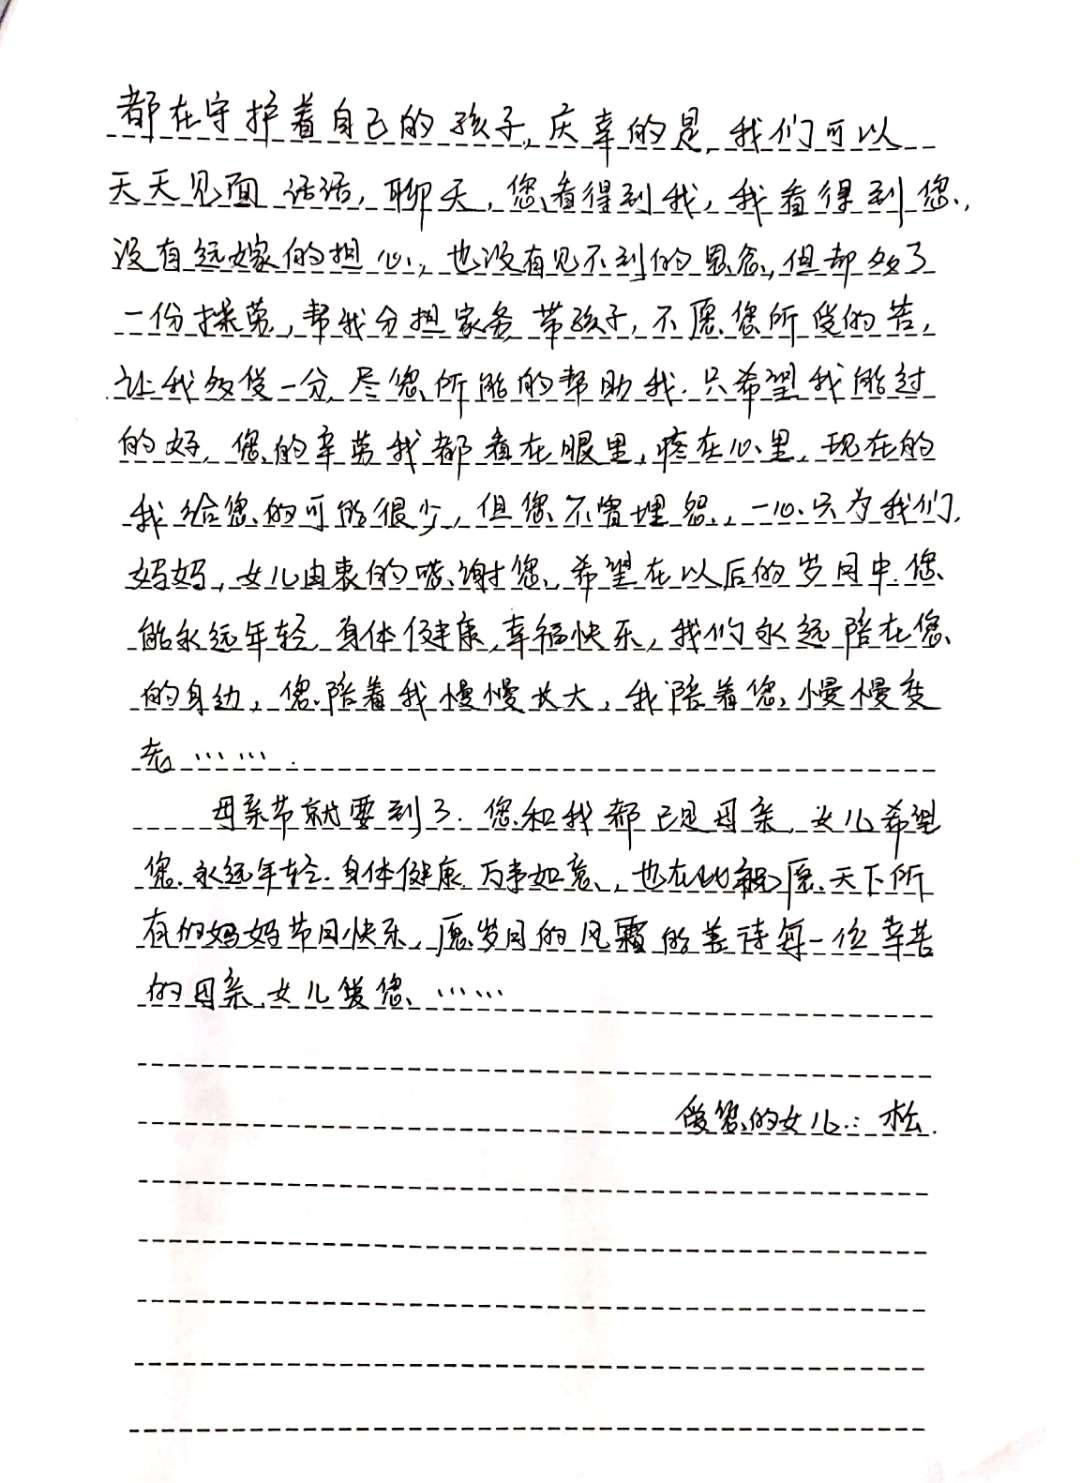 都在守护着自己的孩子,庆幸的是,我们可以
天天见面 话话,聊天,您看得到我,我看得到您,
没有远嫁的担心,也没有见不到的思念,但却多了
一份操劳,帮我分担家务,带孩子,不愿您所受的苦,
让我多受一分,尽您所能的帮助我.只希望我能过
的好,您的辛劳我都看在眼里,疼在心里,现在的
我给您的可能很少,但您不曾埋怨,一心只为我们,
妈妈,女儿由衷的感谢您,希望在以后的岁月中,您
能永远年轻,身体健康,幸福快乐,我们永远陪在您
的身边,您陪着我慢慢长大,我陪着您慢慢变
老…….
母亲节就要到了.您和我都已是母亲,女儿希望
您永远年轻.身体健康,万事如意,也在此祝愿天下所
有的妈妈节日快乐,愿岁月的风霜能善待每一位辛苦
的母亲,女儿爱您……
爱您的女儿:松.